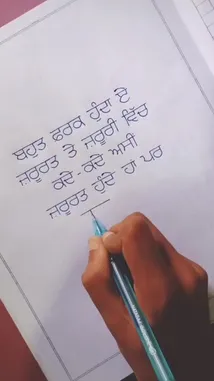 ਬਹੁਤ ਫਰਕ ਹੁੰਦਾ ਏ
ਜ਼ਰੂਰਤ ਤੇ ਜ਼ਰੂਰੀ ਵਿੱਚ
ਕਦੇ - ਕਦੇ ਅਸੀ
ਜ਼ਰੂਰਤ ਹੁੰਦੇ ਹਾਂ ਪਰ